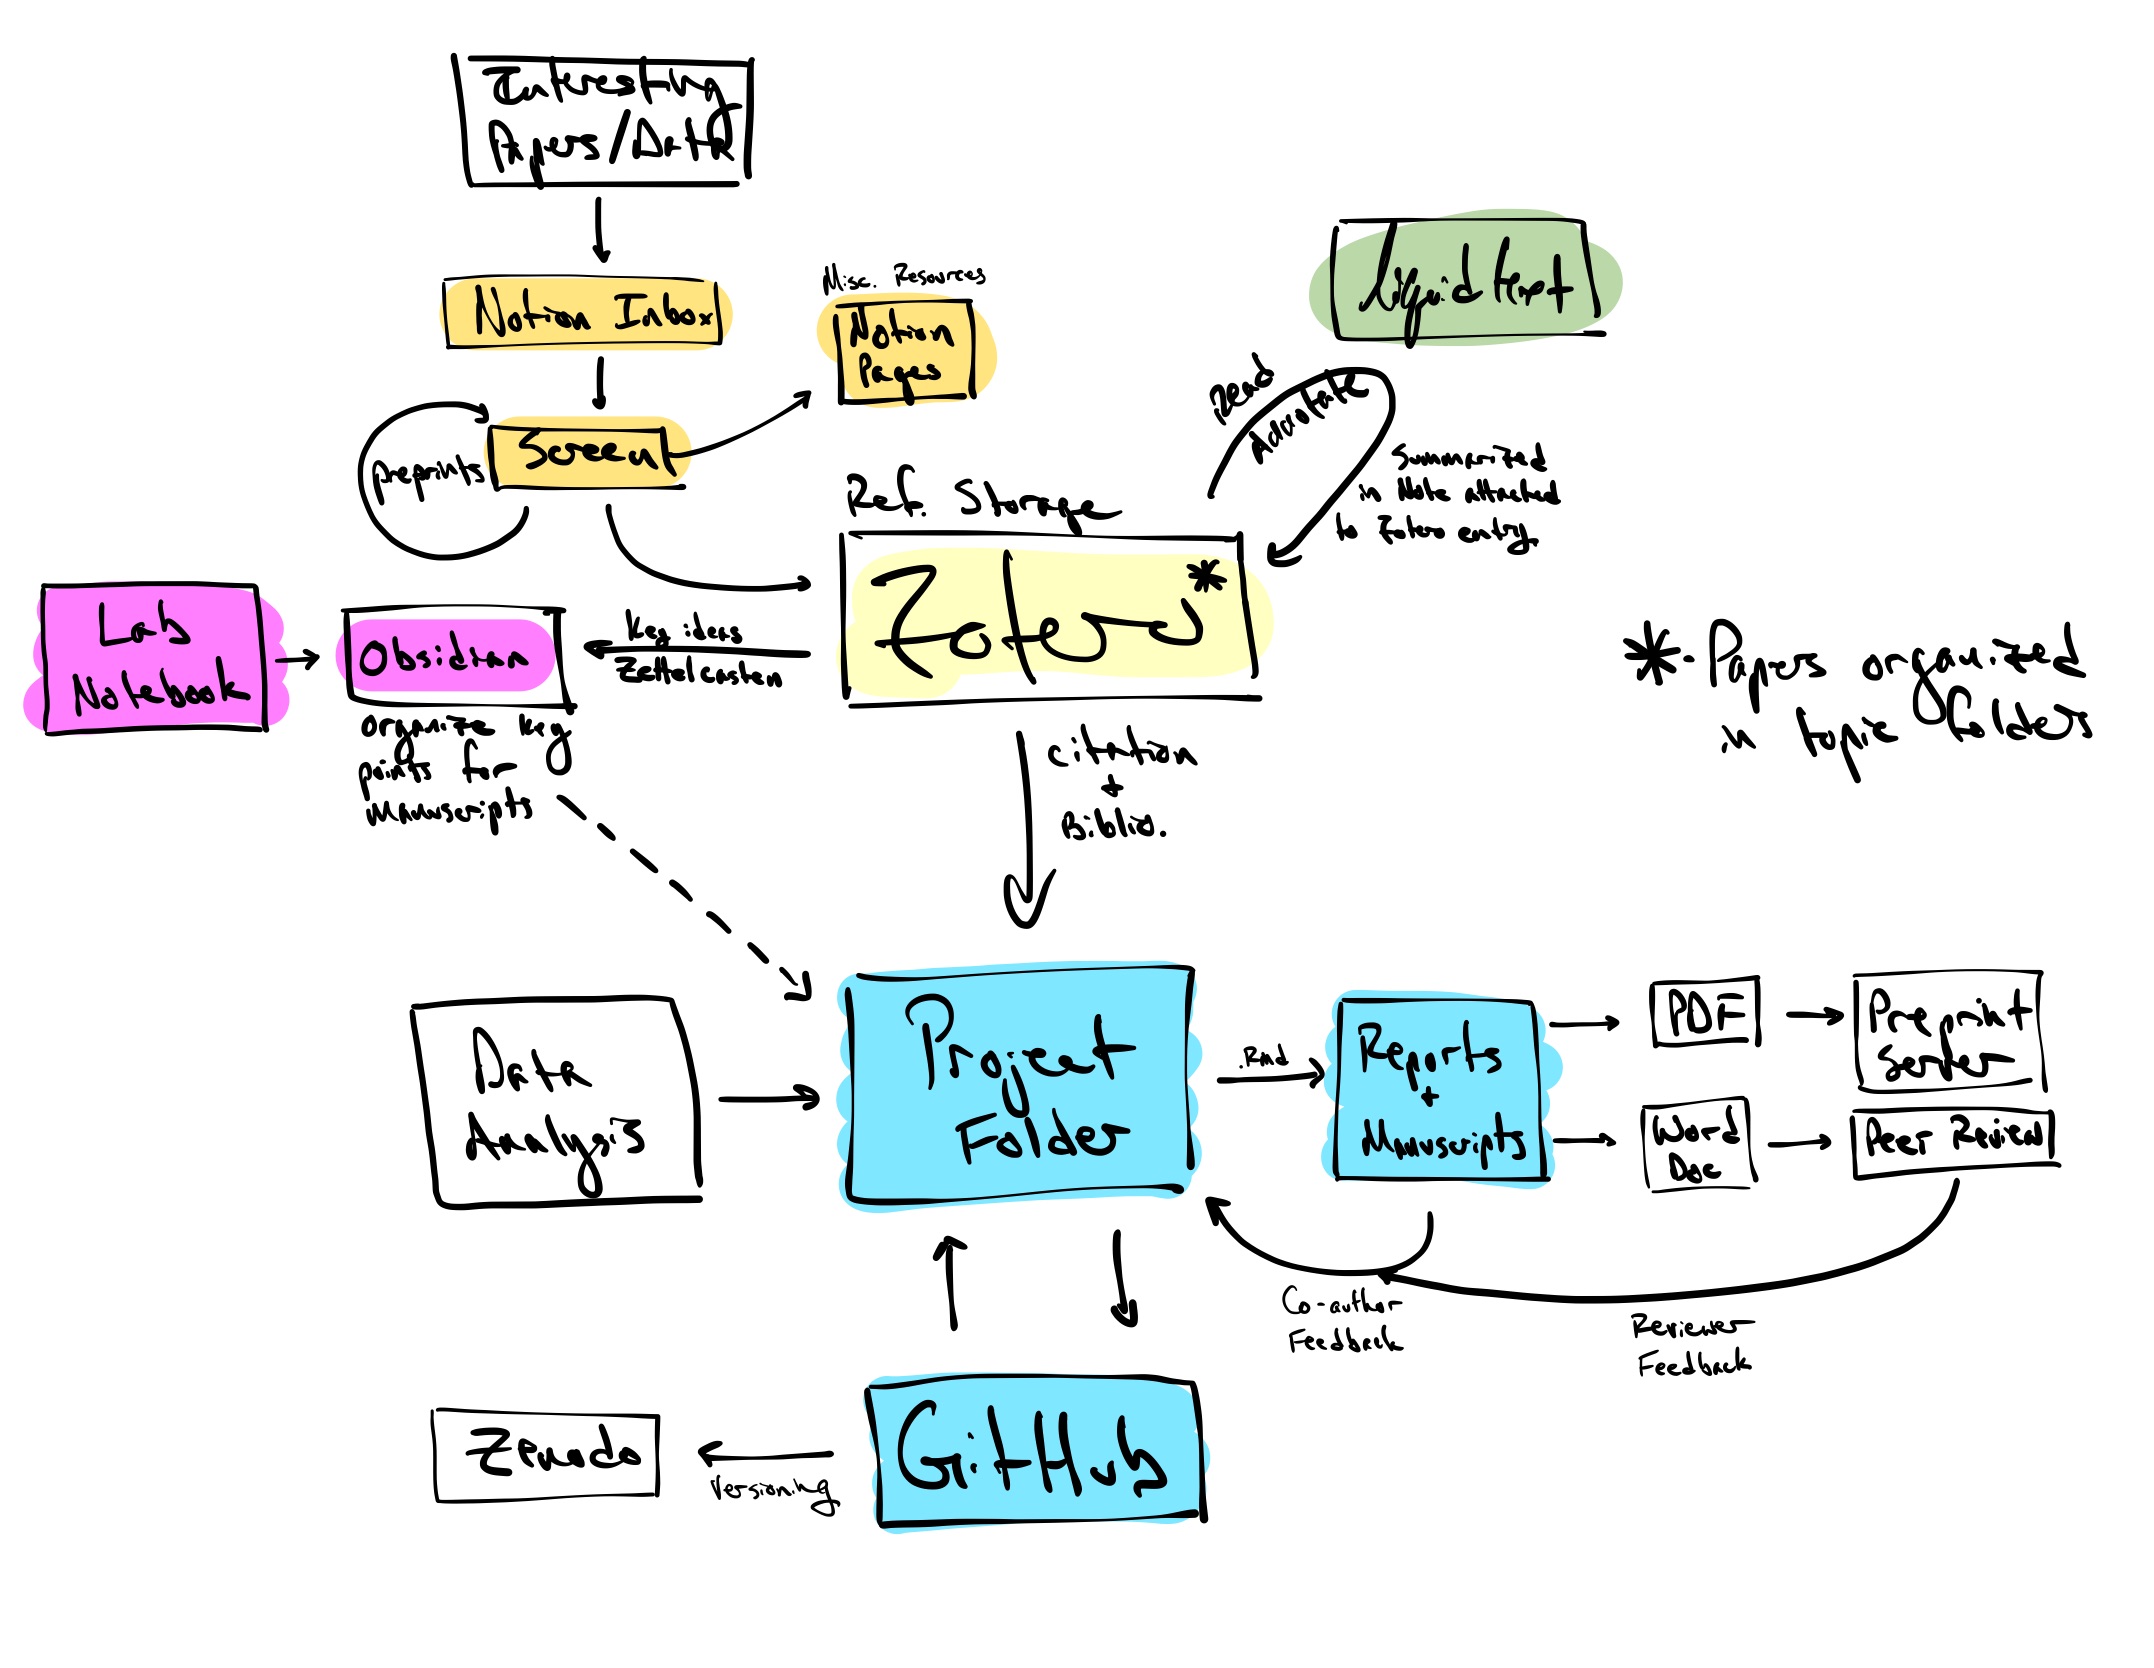 Interesting
Papers/Data
Notion Inbox
Misc. Resources
Notion
Pages
Screen
preprints
Liquid Text
Read
Annotate
Summarized
in Note attached
to Zotero entry.
Ref. Storage
Zotero*
Lab
Notebook
Obsidian
Key ideas
Zettelcasten
organize key
points for
manuscripts
* - Papers organized
in topic folders
citation
+
Biblio.
Data
Analysis
Project
Folder
.Rmd
Reports
+
Manuscripts
PDF
Preprint
Server
Word
Doc
Peer Review
Co-author
Feedback
Reviewer
Feedback
GitHub
Versioning
Zenodo